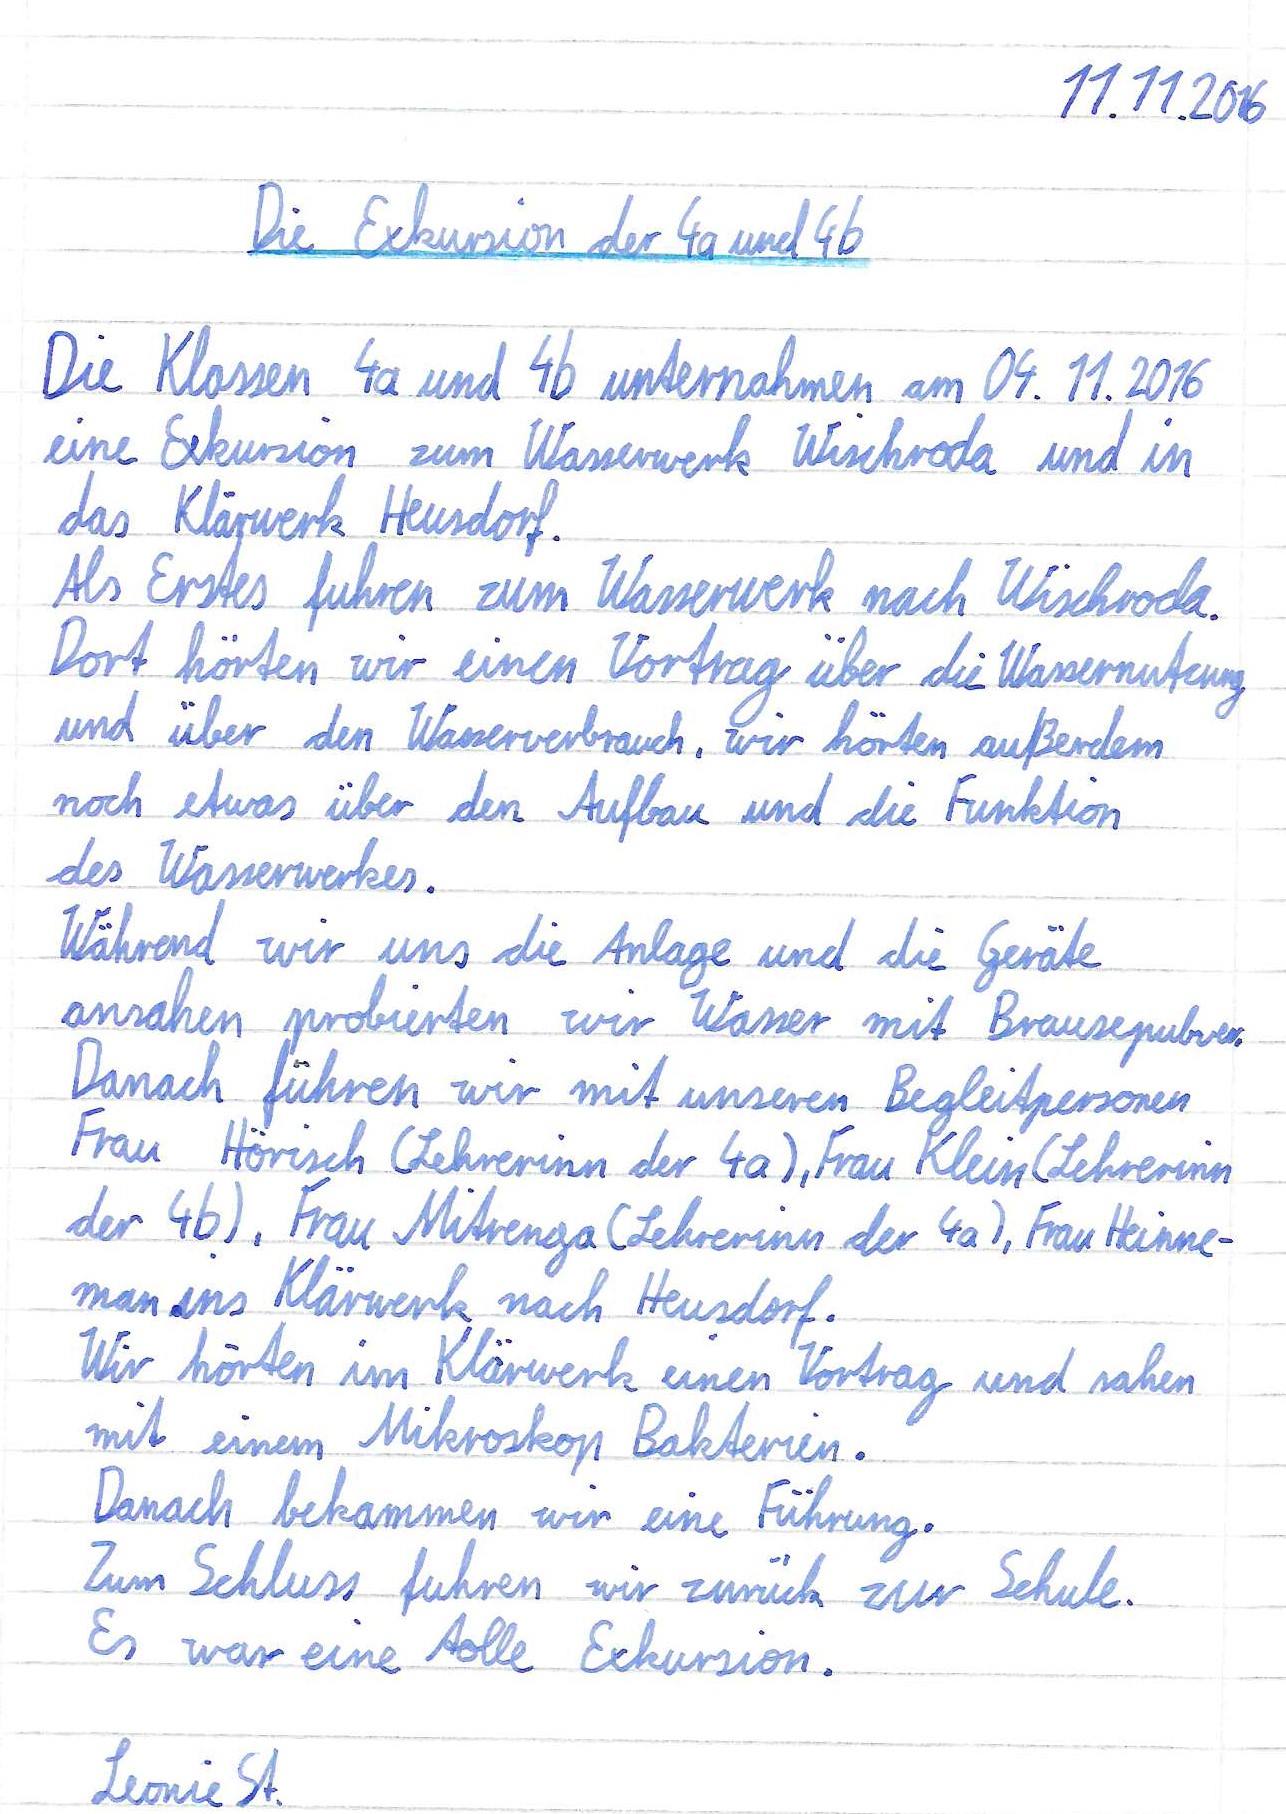 11.11.2016
Die Exkursion der 4a und 4b
Die Klassen 4a und 4b unternahmen am 04. 11. 2016
eine Exkursion zum Wasserwerk Wischroda und in
das Klärwerk Heusdorf.
Als Erstes fuhren zum Wasserwerk nach Wischroda.
Dort hörten wir einen Vortrag über die Wassernutzung
und über den Wasserverbrauch, wir hörten außerdem
noch etwas über den Aufbau und die Funktion
des Wasserwerkes.
Während wir uns die Anlage und die Geräte
ansahen probierten wir Wasser mit Brausepulver.
Danach führen wir mit unseren Begleitpersonen
Frau Hörisch (Lehrerinn der 4a), Frau Klein (Lehrerinn
der 4b), Frau Mitrenga (Lehrerinn der 4a), Frau Heinne-
man ins Klärwerk nach Heusdorf.
Wir hörten im Klärwerk einen Vortrag und sahen
mit einem Mikroskop Bakterien.
Danach bekammen wir eine Führung.
Zum Schluss fuhren wir zurück zur Schule.
Es war eine tolle Exkursion.
Leonie St.